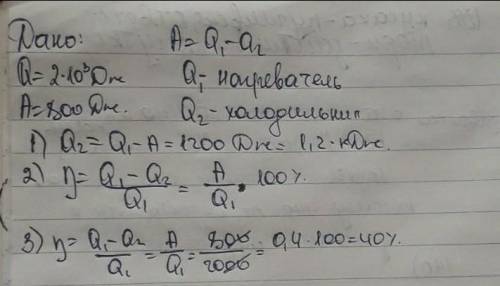 Дано: A = Q₁-Q₂
Q = 2·10³Дж Q₁- нагреватель
A = 800 Дж. Q₂ - холодильник
1) Q₂ = Q₁-A = 1200 Дж = 1,2·кДж.
2) η = Q₁-Q₂/Q₁ = A/Q₁ · 100%.
3) η = Q₁-Q₂/Q₁ = A/Q₁ = 800/2000 = 0,4·100=40%.